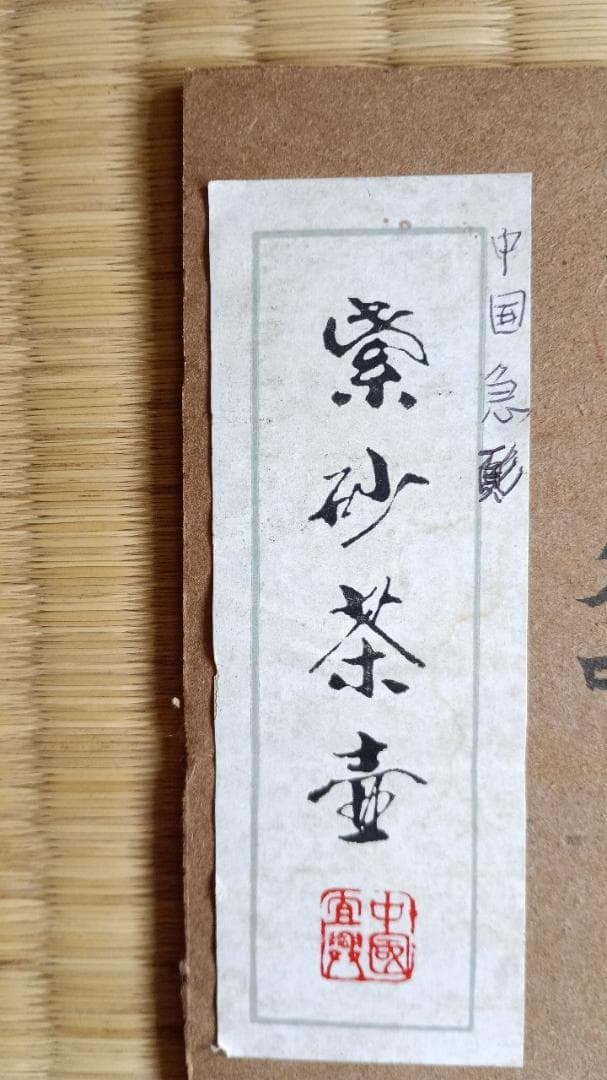 中国急須
紫砂茶壷
中國
宜興